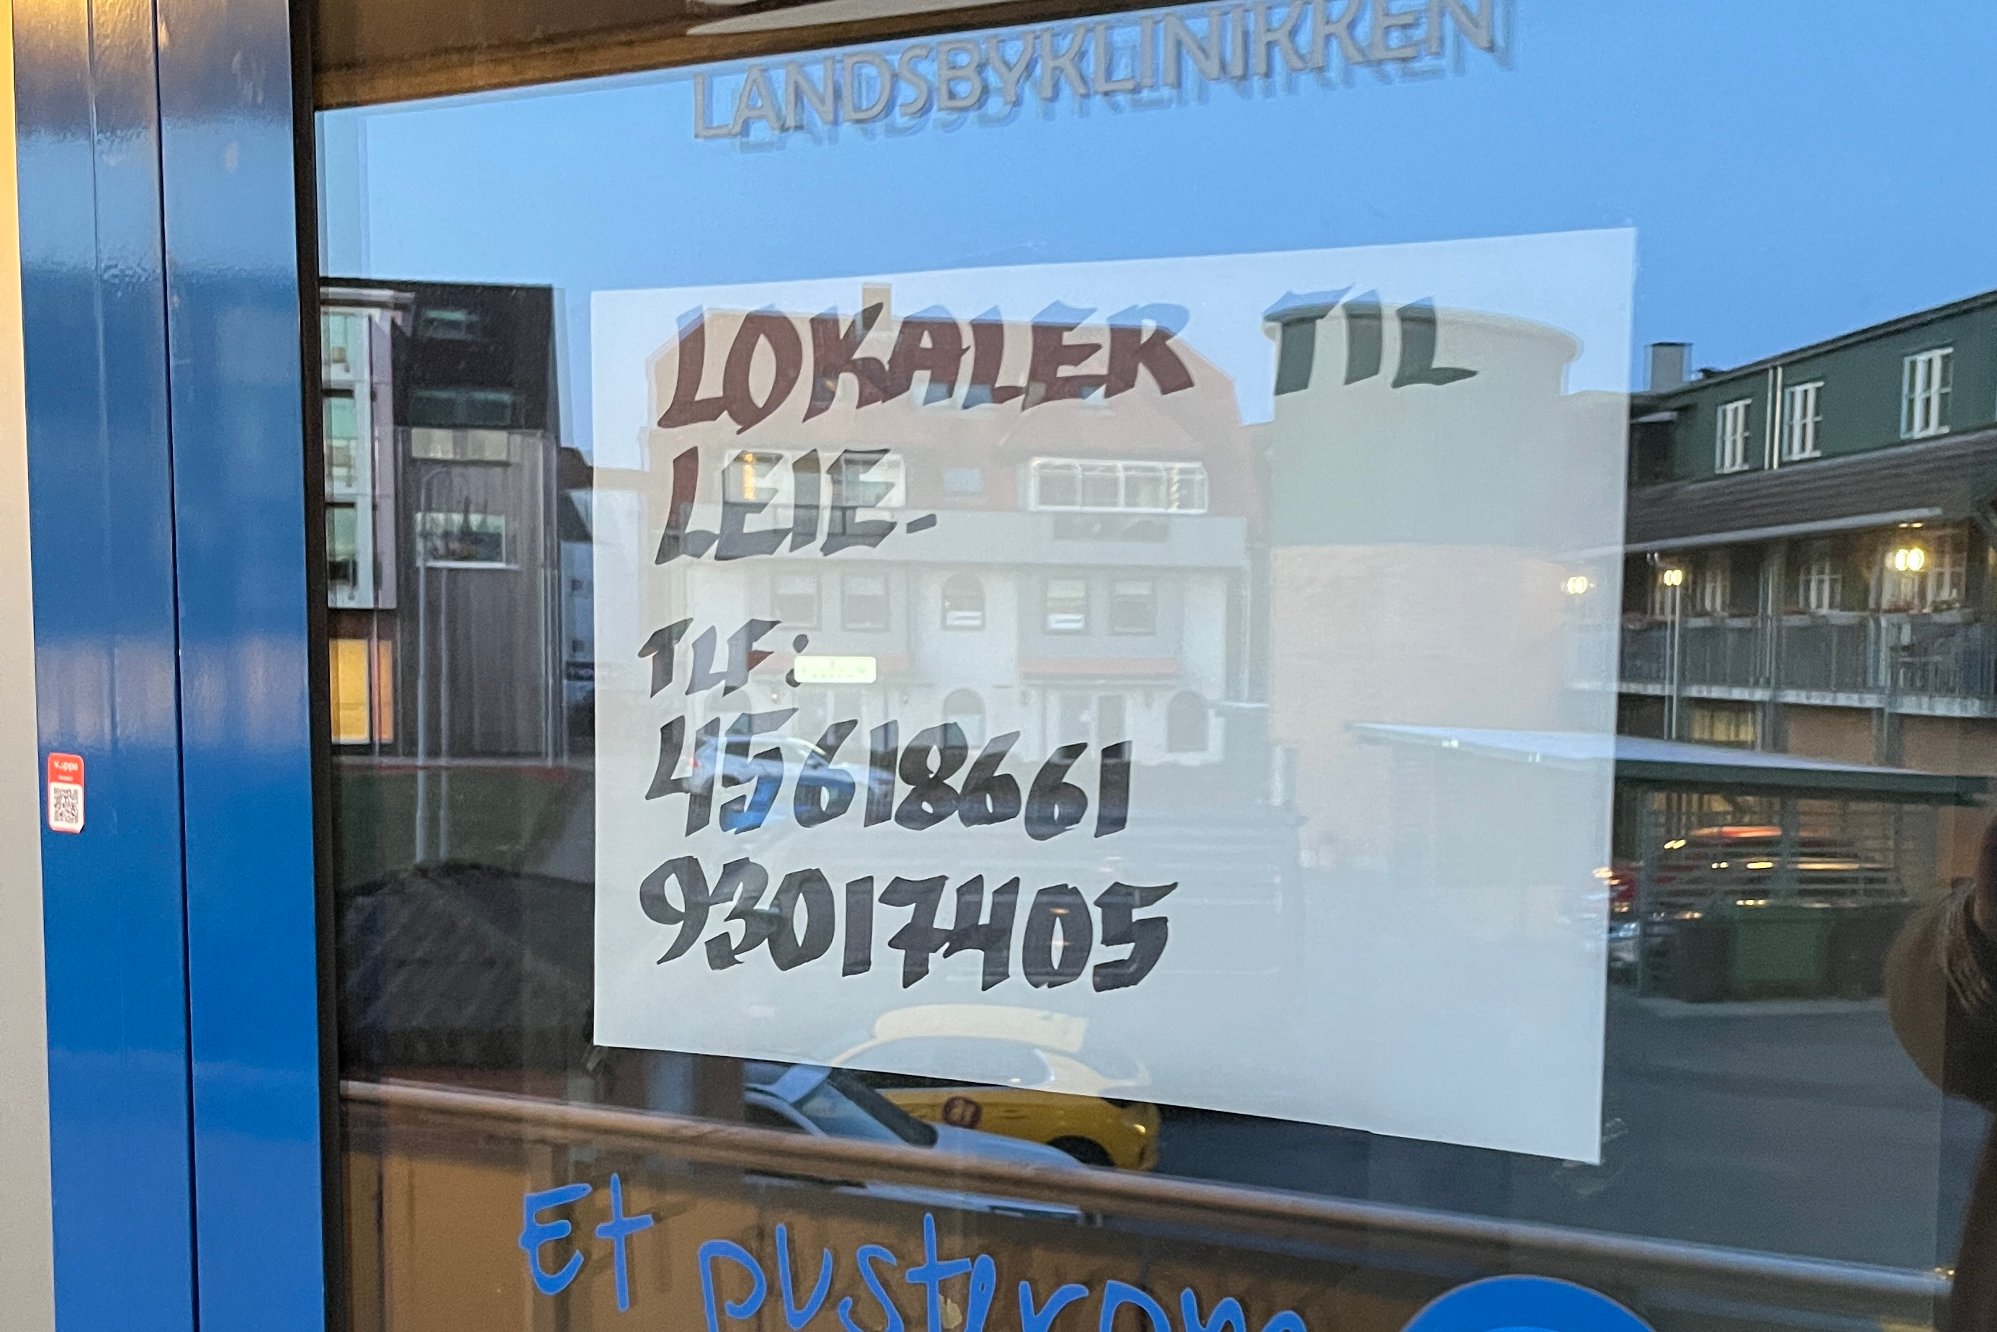 LANDSBYKLINIKKEN
LOKALER TIL
LEIE.
TLF:
45618661
93017405
Et pusterom